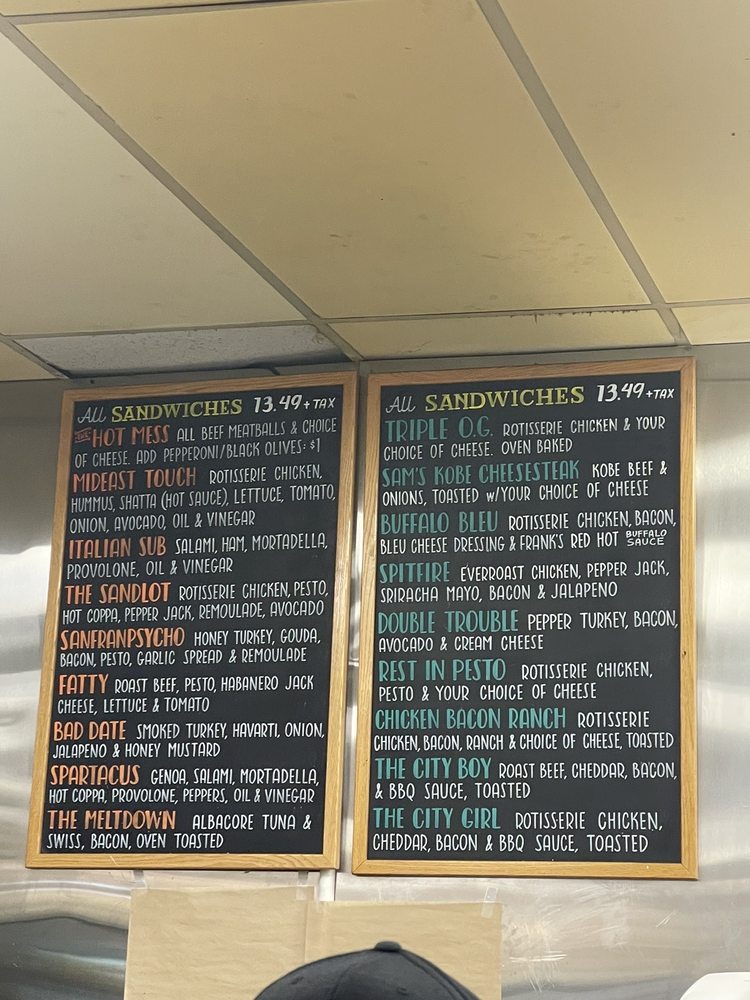 All SANDWICHES 13.49 + TAX
THE HOT MESS ALL BEEF MEATBALLS & CHOICE
OF CHEESE. ADD PEPPERONI/BLACK OLIVES: $1
MIDEAST TOUCH ROTISSERIE CHICKEN,
HUMMUS, SHATTA (HOT SAUCE), LETTUCE, TOMATO,
ONION, AVOCADO, OIL & VINEGAR
ITALIAN SUB SALAMI, HAM, MORTADELLA,
PROVOLONE, OIL & VINEGAR
THE SANDLOT ROTISSERIE CHICKEN, PESTO,
HOT COPPA, PEPPER JACK, REMOULADE, AVOCADO
SANFRANPSYCHO HONEY TURKEY, GOUDA,
BACON, PESTO, GARLIC SPREAD & REMOULADE
FATTY ROAST BEEF, PESTO, HABANERO JACK
CHEESE, LETTUCE & TOMATO
BAD DATE SMOKED TURKEY, HAVARTI, ONION,
JALAPENO & HONEY MUSTARD
SPARTACUS GENOA, SALAMI, MORTADELLA,
HOT COPPA, PROVOLONE, PEPPERS, OIL & VINEGAR
THE MELTDOWN ALBACORE TUNA &
SWISS, BACON, OVEN TOASTED
All SANDWICHES 13.49 +TAX
TRIPLE O.G. ROTISSERIE CHICKEN & YOUR
CHOICE OF CHEESE. OVEN BAKED
SAM'S KOBE CHEESESTEAK KOBE BEEF &
ONIONS, TOASTED W/YOUR CHOICE OF CHEESE
BUFFALO BLEU ROTISSERIE CHICKEN, BACON,
BLEU CHEESE DRESSING & FRANK'S RED HOT BUFFALO SAUCE
SPITFIRE EVERROAST CHICKEN, PEPPER JACK,
SRIRACHA MAYO, BACON & JALAPENO
DOUBLE TROUBLE PEPPER TURKEY, BACON,
AVOCADO & CREAM CHEESE
REST IN PESTO ROTISSERIE CHICKEN,
PESTO & YOUR CHOICE OF CHEESE
CHICKEN BACON RANCH ROTISSERIE
CHICKEN, BACON, RANCH & CHOICE OF CHEESE, TOASTED
THE CITY BOY ROAST BEEF, CHEDDAR, BACON,
& BBQ SAUCE, TOASTED
THE CITY GIRL ROTISSERIE CHICKEN,
CHEDDAR, BACON & BBQ SAUCE, TOASTED